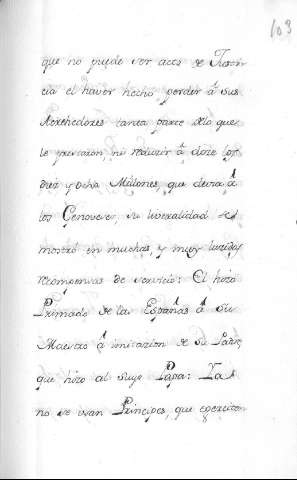 103
que no puede ser acto de Justi
cia el haver hecho perder â sus
Acrehedores tanta parte de lo que
le prestaron, ni reducir â doze los
diez y ocho Millones, que devia â
los Genoveses, su liveralidad se
mostró en muchas, y muy lucidas
recompensas de servicio: El hizo
Primado de las Españas â su
Maestro â imitazion de su Padre,
que hizo al suyo Papa: Ya
no se usan Principes, que egerciten